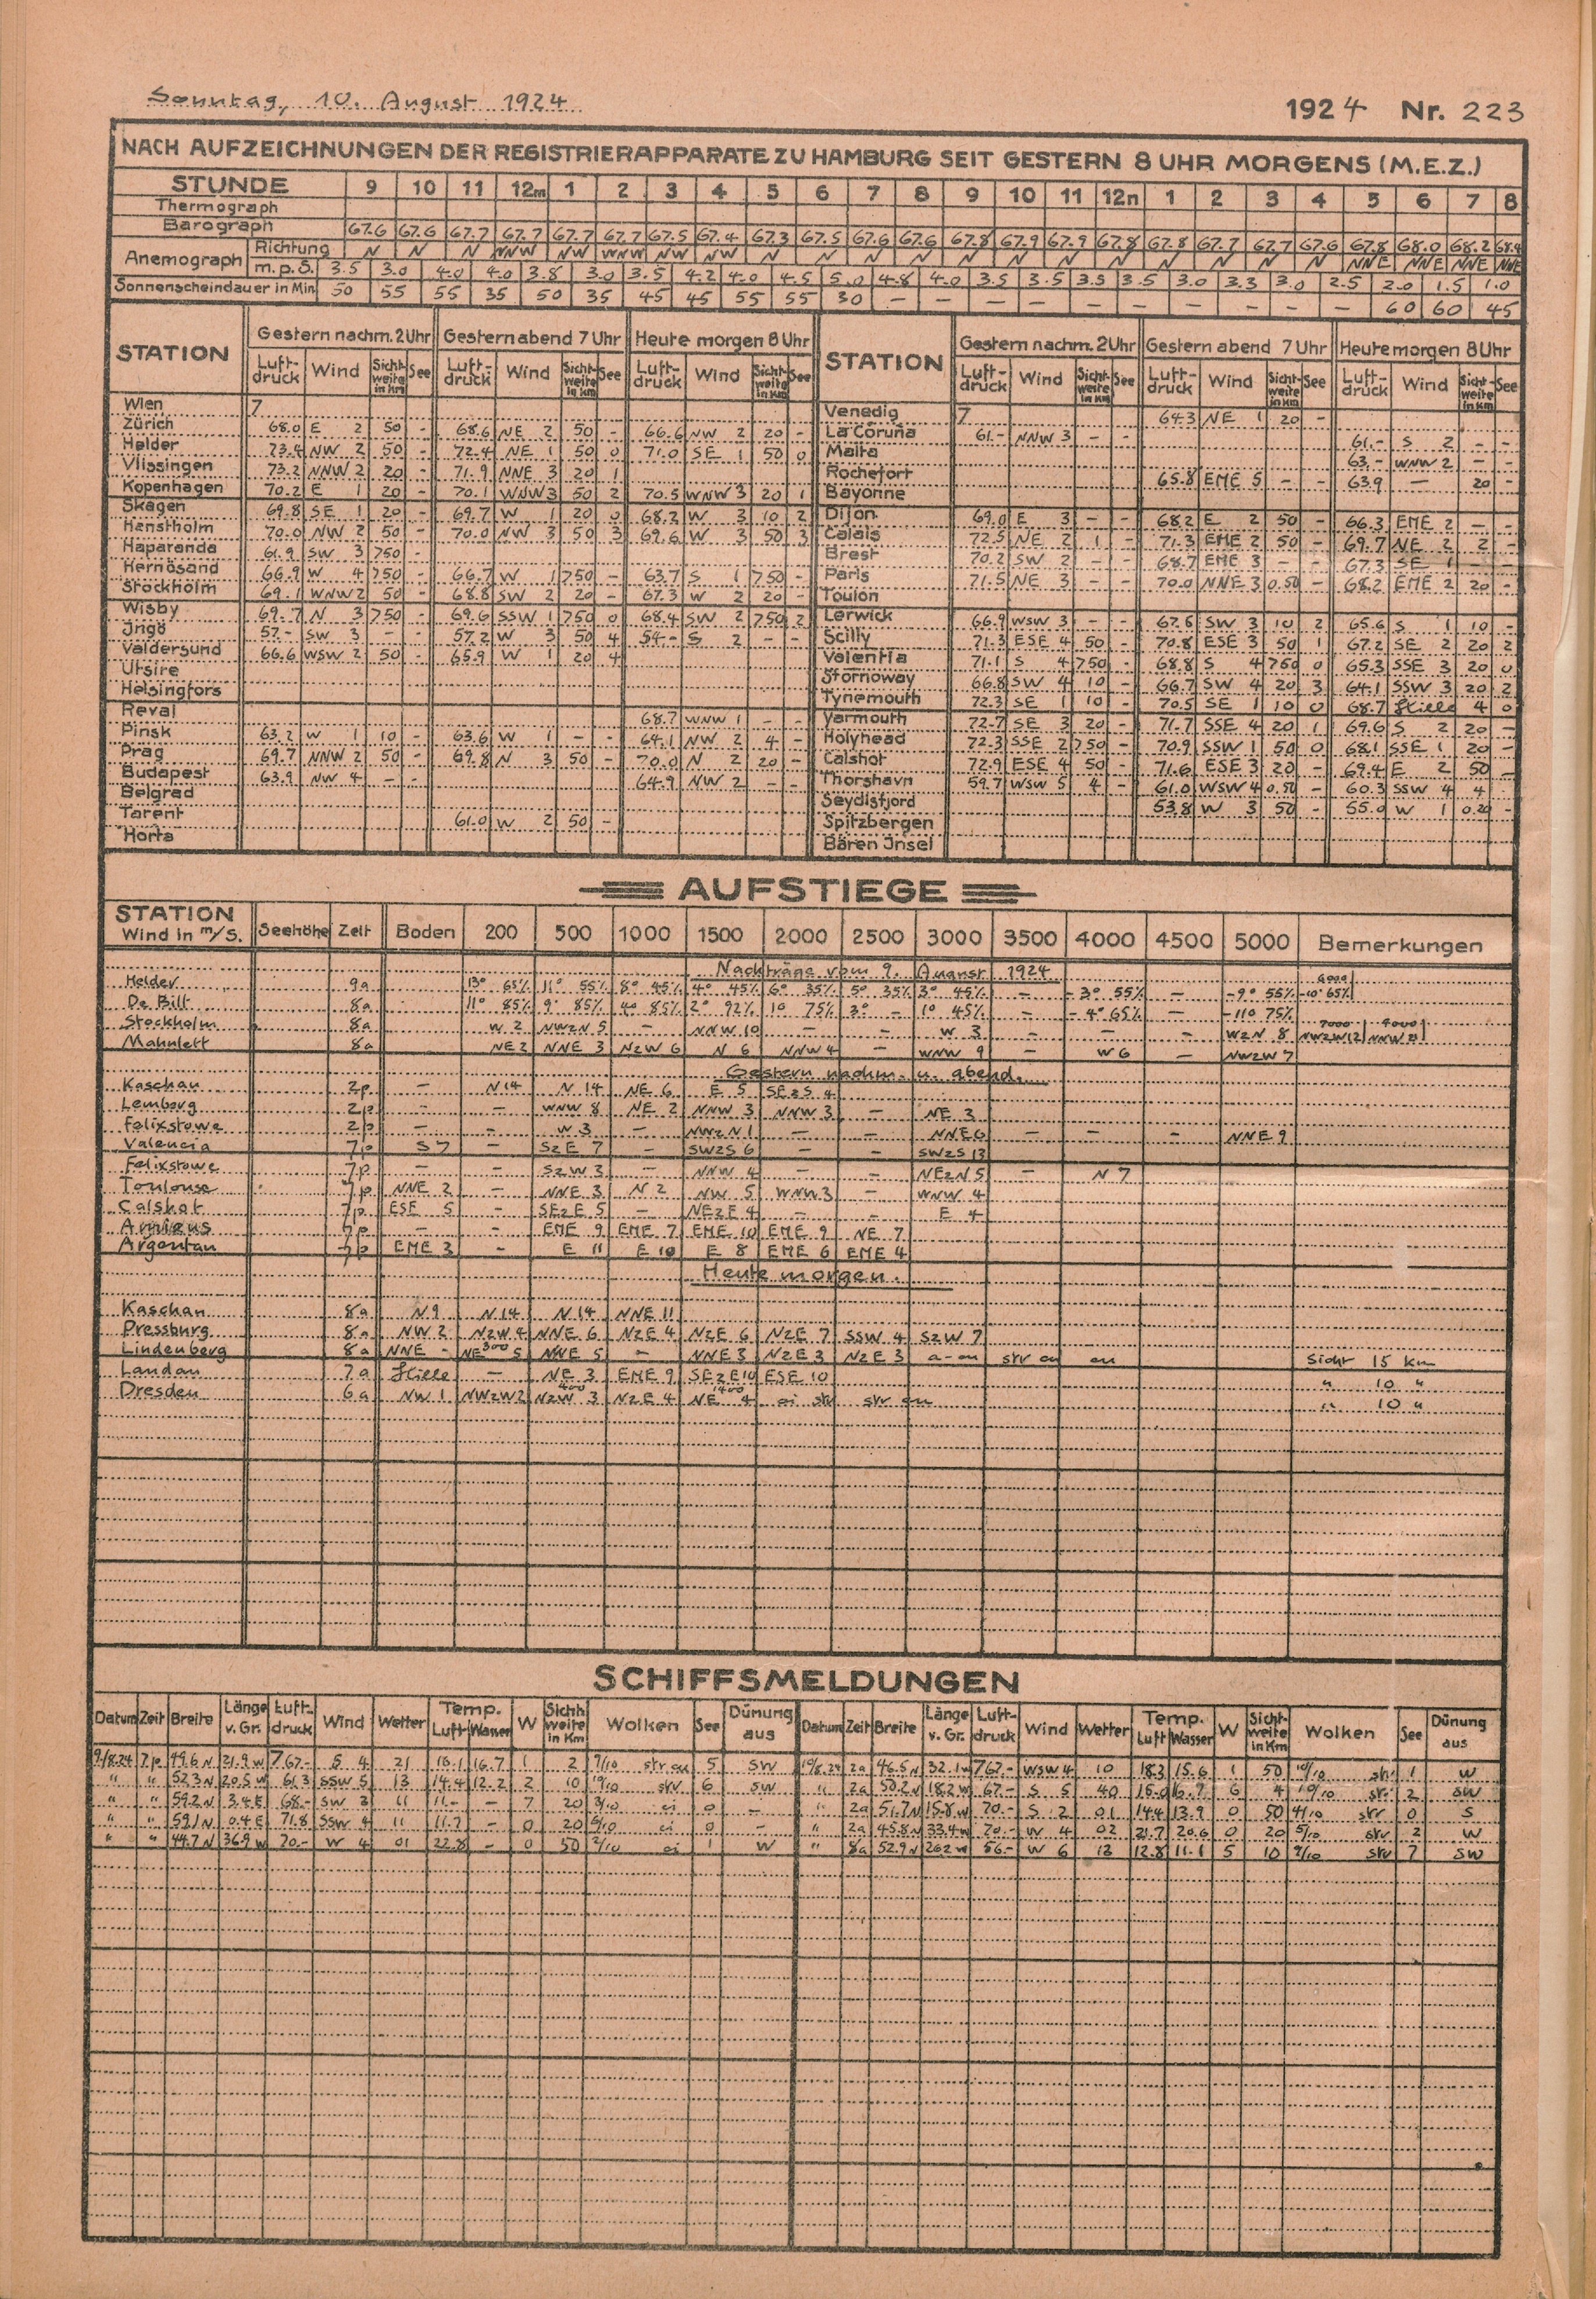 Sonntag, 10. August 1924
1924 Nr. 223
NACH AUFZEICHNUNGEN DER REGISTRIERAPPARATE ZU HAMBURG SEIT GESTERN 8 UHR MORGENS (M.E.Z.)
STUNDE 9 10 11 12m 1 2 3 4 5 6 7 8 9 10 11 12n 1 2 3 4 5 6 7 8
Thermograph
Barograph 67.6 67.6 67.7 67.7 67.7 67.7 67.5 67.4 67.3 67.5 67.6 67.6 67.8 67.9 67.9 67.8 67.8 67.7 67.7 67.6 67.8 68.0 68.2 68.4
Anemograph Richtung N N N NNW NW WNW NW NW N N N N N N N N N N N N NNE NNE NNE NNE
m.p.S. 3.5 3.0 4.0 4.0 3.8 3.0 3.5 4.2 4.0 4.5 5.0 4.8 4.0 3.5 3.5 3.5 3.5 3.0 3.3 3.0 2.5 2.0 1.5 1.0
Sonnenscheindauer in Min 50 55 55 35 50 35 45 45 55 55 30 — — — — — — — — — — 60 60 45
STATION Gestern nachm. 2 Uhr Gestern abend 7 Uhr Heute morgen 8 Uhr STATION Gestern nachm. 2 Uhr Gestern abend 7 Uhr Heute morgen 8 Uhr
Luftdruck Wind Sichtweite in Km See Luftdruck Wind Sichtweite in Km See Luftdruck Wind Sichtweite in Km See Luftdruck Wind Sichtweite in Km See Luftdruck Wind Sichtweite in Km See Luftdruck Wind Sichtweite in Km See
Wien 7
Zürich 68.0 E 2 50 - 68.6 NE 2 50 - 66.6 NW 2 20 -
Helder 73.4 NW 2 50 - 72.4 NE 1 50 0 71.0 SE 1 50 0
Vlissingen 73.2 NNW 2 20 - 71.9 NNE 3 20 1
Kopenhagen 70.2 E 1 20 - 70.1 WNW 3 50 2 70.5 WNW 3 20 1
Skagen 69.8 SE 1 20 - 69.7 W 1 20 0 68.2 W 3 10 2
Hanstholm 70.0 NW 2 50 - 70.0 NW 3 50 3 69.6 W 3 50 3
Haparanda 61.9 SW 3 750 -
Hernösand 66.9 W 4 750 - 66.7 W 1 750 - 63.7 S 1 750 -
Stockholm 69.1 WNW 2 50 - 68.8 SW 2 20 - 67.3 W 2 20 -
Wisby 69.7 N 3 750 - 69.6 SSW 1 750 0 68.4 SW 2 750 2
Ingö 57.- SW 3 - - 57.2 W 3 50 4 54.- S 2 - -
Valdersund 66.6 WSW 2 50 - 65.9 W 1 20 4
Utsire
Helsingfors
Reval 68.7 WNW 1 - -
Pinsk 63.2 W 1 10 - 63.6 W 1 - - 64.1 NW 2 4 -
Prag 69.7 NNW 2 50 - 69.8 N 3 50 - 70.0 N 2 20 -
Budapest 63.9 NW 4 - - 64.9 NW 2 - -
Belgrad
Tarent 61.0 W 2 50 -
Horta
Venedig 7 64.3 NE 1 20 -
La Coruña 61.- NNW 3 - - 61.- S 2 - -
Malta 63.- WNW 2 - -
Rochefort 65.8 EME 5 - - 63.9 — 20 -
Bayonne
Dijon 69.0 E 3 - - 68.2 E 2 50 - 66.3 EME 2 - -
Calais 72.5 NE 2 1 - 71.3 EME 2 50 - 69.7 NE 2 2 -
Brest 70.2 SW 2 - - 68.7 EME 3 - - 67.3 SE 1 - -
Paris 71.5 NE 3 - - 70.0 NNE 3 0.50 - 68.2 EME 2 20 -
Toulon
Lerwick 66.9 WSW 3 - - 67.6 SW 3 10 2 65.6 S 1 10 -
Scilly 71.3 ESE 4 50 - 70.8 ESE 3 50 1 67.2 SE 2 20 2
Valentia 71.1 S 4 750 - 68.8 S 4 750 0 65.3 SSE 3 20 0
Stornoway 66.8 SW 4 10 - 66.7 SW 4 20 3 64.1 SSW 3 20 2
Tynemouth 72.3 SE 1 10 - 70.5 SE 1 10 0 68.7 Stille 4 0
Yarmouth 72.7 SE 3 20 - 71.7 SSE 4 20 1 69.6 S 2 20 -
Holyhead 72.3 SSE 2 750 - 70.9 SSW 1 50 0 68.1 SSE 1 20 -
Calshot 72.9 ESE 4 50 - 71.6 ESE 3 20 - 69.4 E 2 50 -
Thorshavn 59.7 WSW 5 4 - 61.0 WSW 4 0.50 - 60.3 SSW 4 4
Seydisfjord 53.8 W 3 50 - 55.0 W 1 0.20 -
Spitzbergen
Bären Insel
AUFSTIEGE
STATION Wind in m/S. Seehöhe Zeit Boden 200 500 1000 1500 2000 2500 3000 3500 4000 4500 5000 Bemerkungen
Nachträge vom 9. August 1924
Helder 9a 13° 65% 11° 55% 8° 45% 4° 45% 6° 35% 5° 35% 3° 45% - -3° 55% - -9° 55% 6000 -10° 65%
De Bilt 8a 11° 85% 9° 85% 4° 85% 2° 92% 1° 75% 3° - 1° 45% - -4° 65% - -11° 75%
Stockholm 8a W 2 NWzN 5 - NNW 10 - - W 3 - - - WzN 8 7000 NWzW 12
Mahnlett 8a NE 2 NNE 3 NzW 6 N 6 NNW 4 - WNW 9 - W 6 - NWzW 7
Gestern nachm. u. abend.
Kaschau 2p - N 14 N 14 NE 6 E 5 SEzS 4
Lemberg 2p - - WNW 8 NE 2 NNW 3 NNW 3 - NE 3
Felixstowe 2p - - W 3 - NWzN 1 - - NNE 6 - - - NNE 9
Valencia 7p S 7 - SzE 7 - SWzS 6 - - SWzS 13
Felixstowe 7p - - SzW 3 - NNW 4 - - NEzN 5 - N 7
Toulouse 7p NNE 2 - NNE 3 N 2 NW 5 WNW 3 - WNW 4
Calshot 7p ESE 5 - SEzE 5 - NEzE 4 - - E 4
Amiens 7p - - EME 9 EME 7 EME 10 EME 9 NE 7
Argentan 7p EME 3 - E 11 E 10 E 8 EME 6 EME 4
Heute morgen.
Kaschau 8a N 9 N 14 N 14 NNE 11
Pressburg 8a NW 2 NzW 4 NNE 6 NzE 4 NzE 6 NzE 7 SSW 4 SzW 7
Lindenberg 8a NNE - NE 300 5 NNE 5 - NNE 3 NzE 3 NzE 3 a-cu str cu cu Sicht 15 Km
Landau 7a Stille - NE 3 EME 9 SEzE 10 ESE 10 " 10 "
Dresden 6a NW 1 NWzW 2 400 NzW 3 NzE 4 1400 NE 4 ci str str cu " 10 "
SCHIFFSMELDUNGEN
Datum Zeit Breite Länge v. Gr. Luftdruck Wind Wetter Temp. Luft Wasser W Sichtweite in Km Wolken See Dünung aus Datum Zeit Breite Länge v. Gr. Luftdruck Wind Wetter Temp. Luft Wasser W Sichtweite in Km Wolken See Dünung aus
9/8.24 7p 49.6 N 21.9 W 767.- S 4 21 16.1 16.7 1 2 9/10 str cu 5 SW 10/8.24 2a 46.5 N 32.1 W 767.- WSW 4 10 18.3 15.6 1 50 10/10 str 1 W
" " 52.3 N 20.5 W 61.3 SSW 5 13 14.4 12.2 2 10 10/10 str 6 SW " 2a 50.2 N 18.2 W 67.- S 5 40 15.0 16.7 6 4 10/10 str 2 SW
" " 59.2 N 3.4 E 68.- SW 3 11 11.- - 7 20 3/10 ci 0 - " 2a 51.7 N 15.8 W 70.- S 2 01 14.4 13.9 0 50 4/10 str 0 S
" " 59.1 N 0.4 E 71.8 SSW 4 11 11.7 - 0 20 6/10 ci 0 - " 2a 45.8 N 33.4 W 70.- W 4 02 21.7 20.6 0 20 5/10 str 2 W
" " 44.7 N 36.9 W 70.- W 4 01 22.8 - 0 50 2/10 ci 1 W " 8a 52.9 N 26.2 W 56.- W 6 13 12.8 11.1 5 10 9/10 str 7 SW